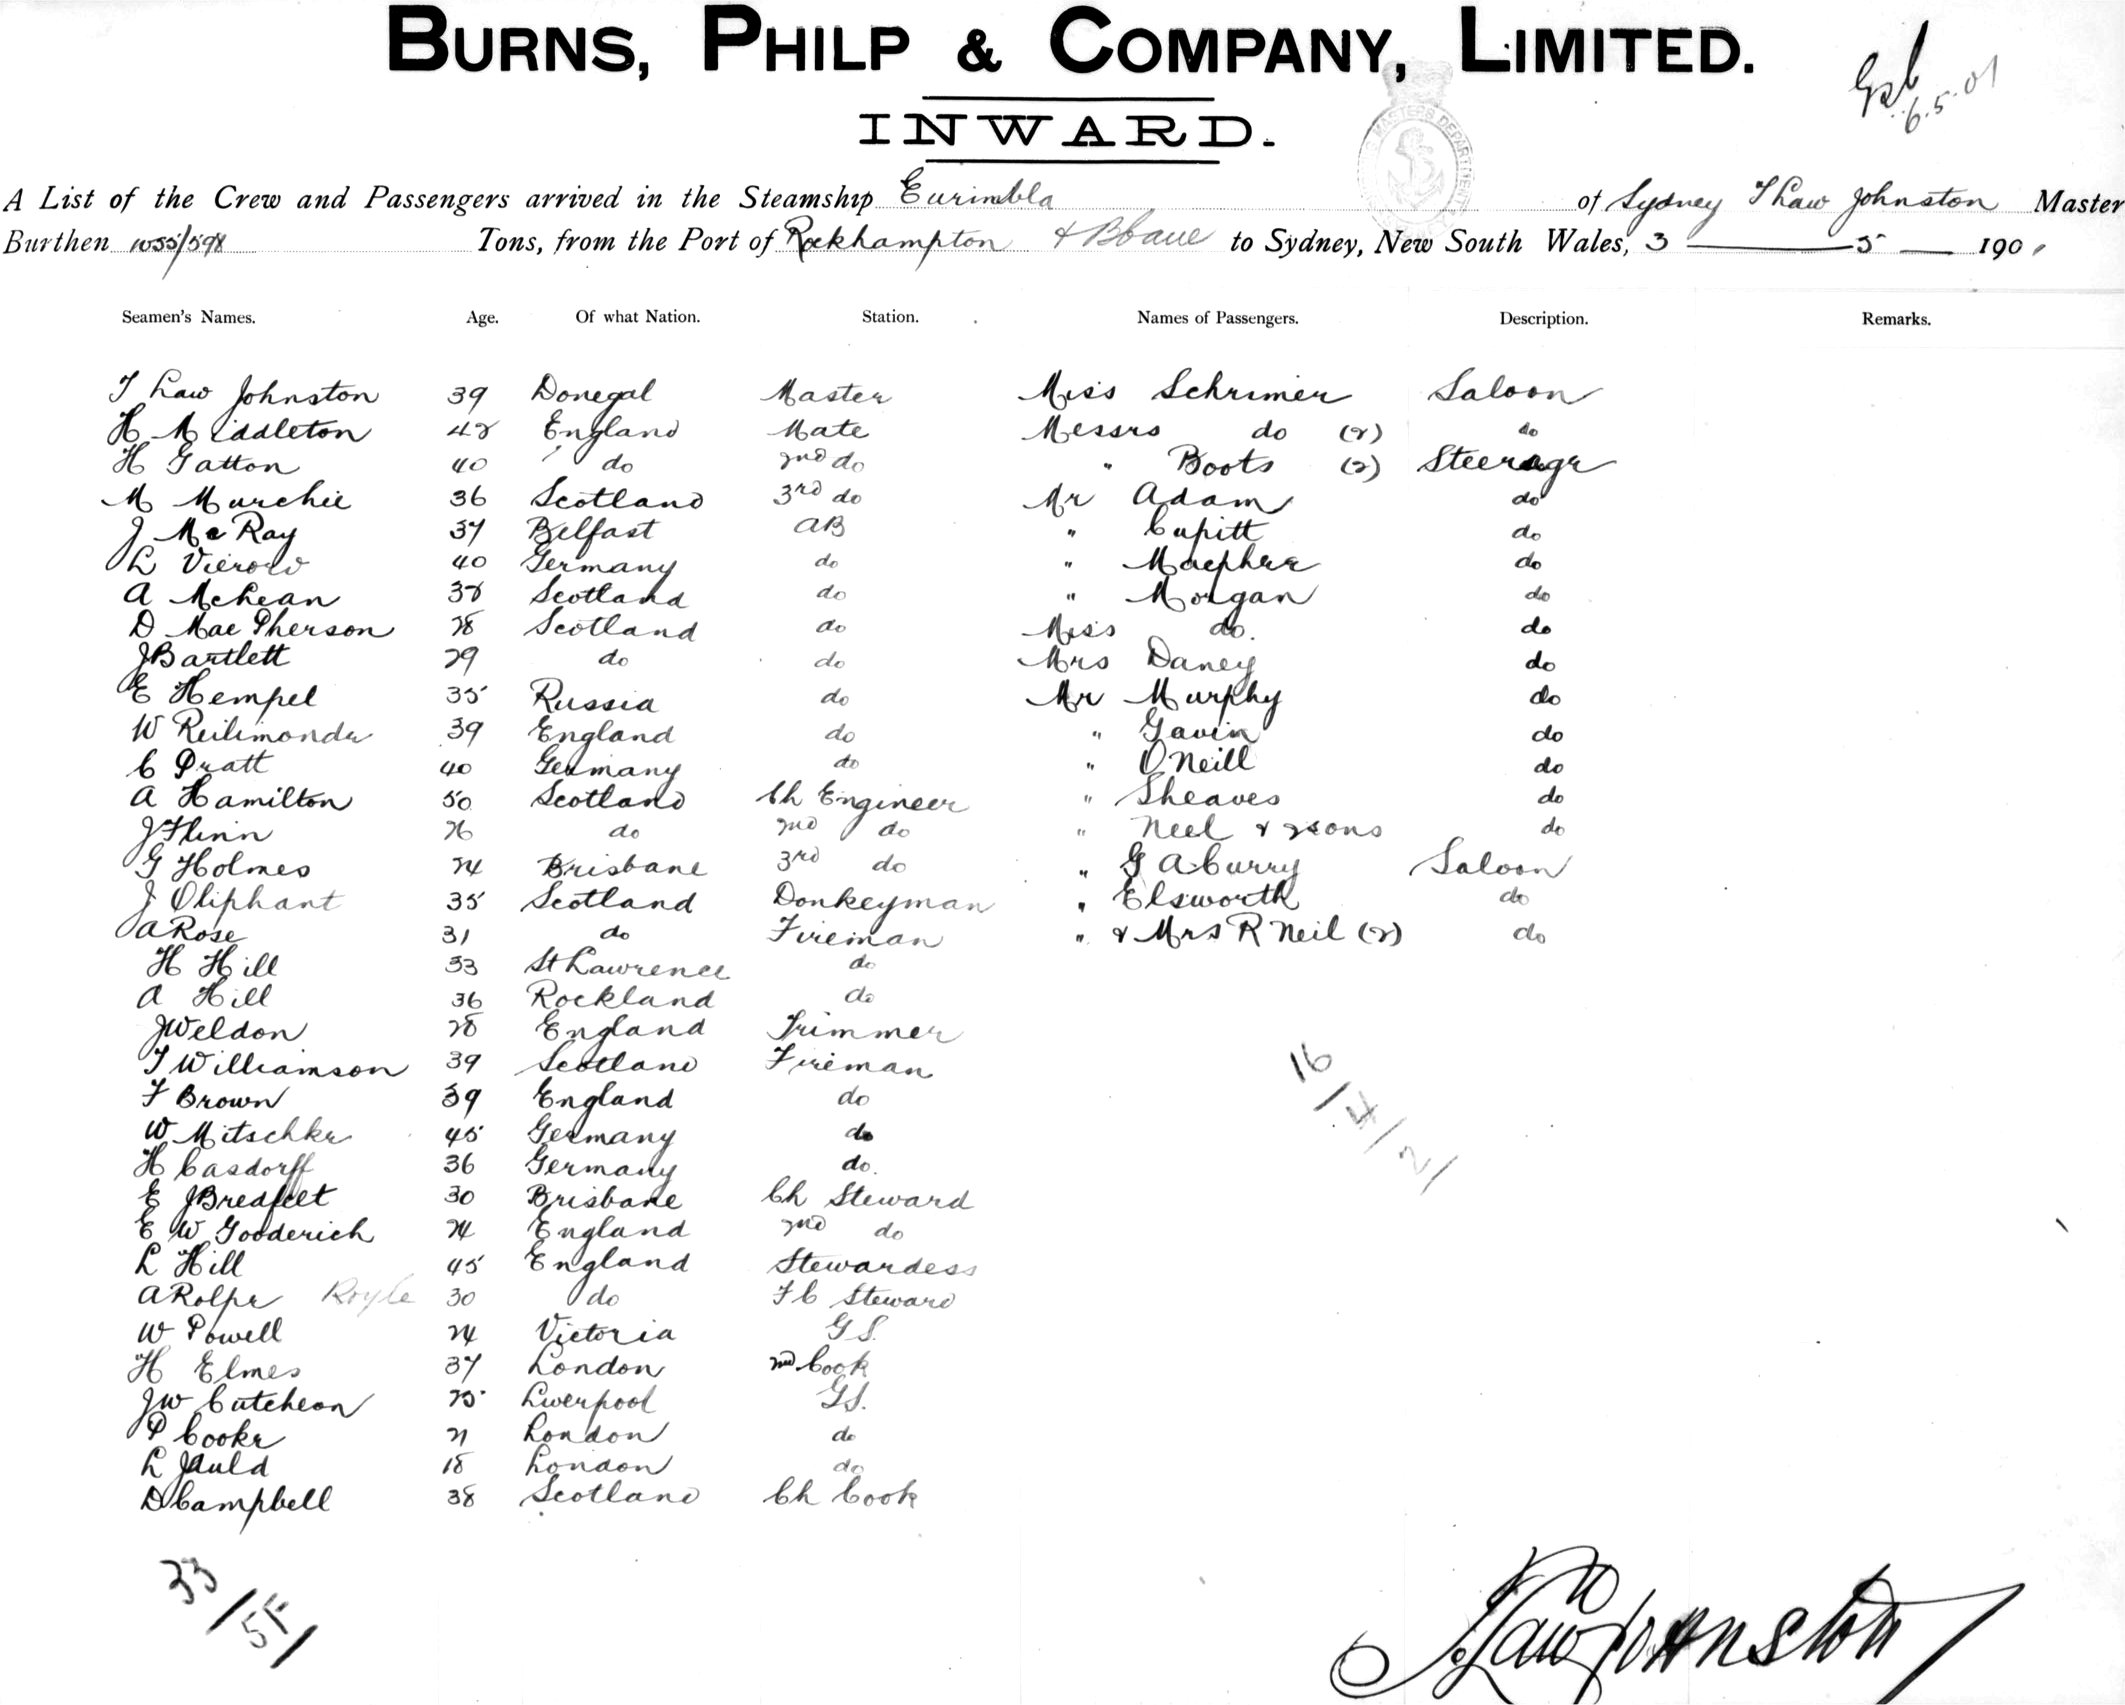 BURNS, PHILP & COMPANY, LIMITED.
6.5.01
INWARD.
MASTERS DEPARTMENT
A List of the Crew and Passengers arrived in the Steamship Eurimbla of Sydney T Law Johnston Master
Burthen 1055/598 Tons, from the Port of Rockhampton & Bbane to Sydney, New South Wales, 3 5 1901
Seamen's Names. Age. Of what Nation. Station. Names of Passengers. Description. Remarks.
T Law Johnston 39 Donegal Master Miss Schrimer Saloon
H Middleton 42 England Mate Messrs do (2) do
H Gatton 40 do 2nd do " Boots (2) Steerage
M Murchie 36 Scotland 3rd do Mr Adam do
J McRay 37 Belfast AB " Cupitt do
L Vierow 40 Germany do " Macphee do
A McLean 38 Scotland do " Morgan do
D MacPherson 28 Scotland do Miss do. do
J Bartlett 29 do do Mrs Daney do
E Hempel 35 Russia do Mr Murphy do
W 39 England do " Gavin do
C Pratt 40 Germany do " O'Neill do
A Hamilton 50 Scotland Ch Engineer " Sheaves do
J Flinn 26 do 2nd do " Neel & 2 sons do
G Holmes 24 Brisbane 3rd do " G A Curry Saloon
J Oliphant 35 Scotland Donkeyman " Elsworth do
A Rose 31 do Fireman " & Mrs R Neil (2) do
H Hill 33 St Lawrence do
A Hill 36 Rockland do
J Weldon 28 England Trimmer
T Williamson 39 Scotland Fireman
F Brown 39 England do
W Mitschke 45 Germany do
H Casdorff 36 Germany do.
E J Bredfelt 30 Brisbane Ch Steward
E W Gooderich 24 England 2nd do
L Hill 45 England Stewardess
A Rolpe Royle 30 do F C Steward
W Powell 24 Victoria G S.
H Elmes 37 London 2nd Cook
J W Cutcheon 25 Liverpool G S.
P Cooke 21 London do
L J Auld 18 London do
D Campbell 38 Scotland Ch Cook
16/4/2/
33/5F/
T Law Johnston